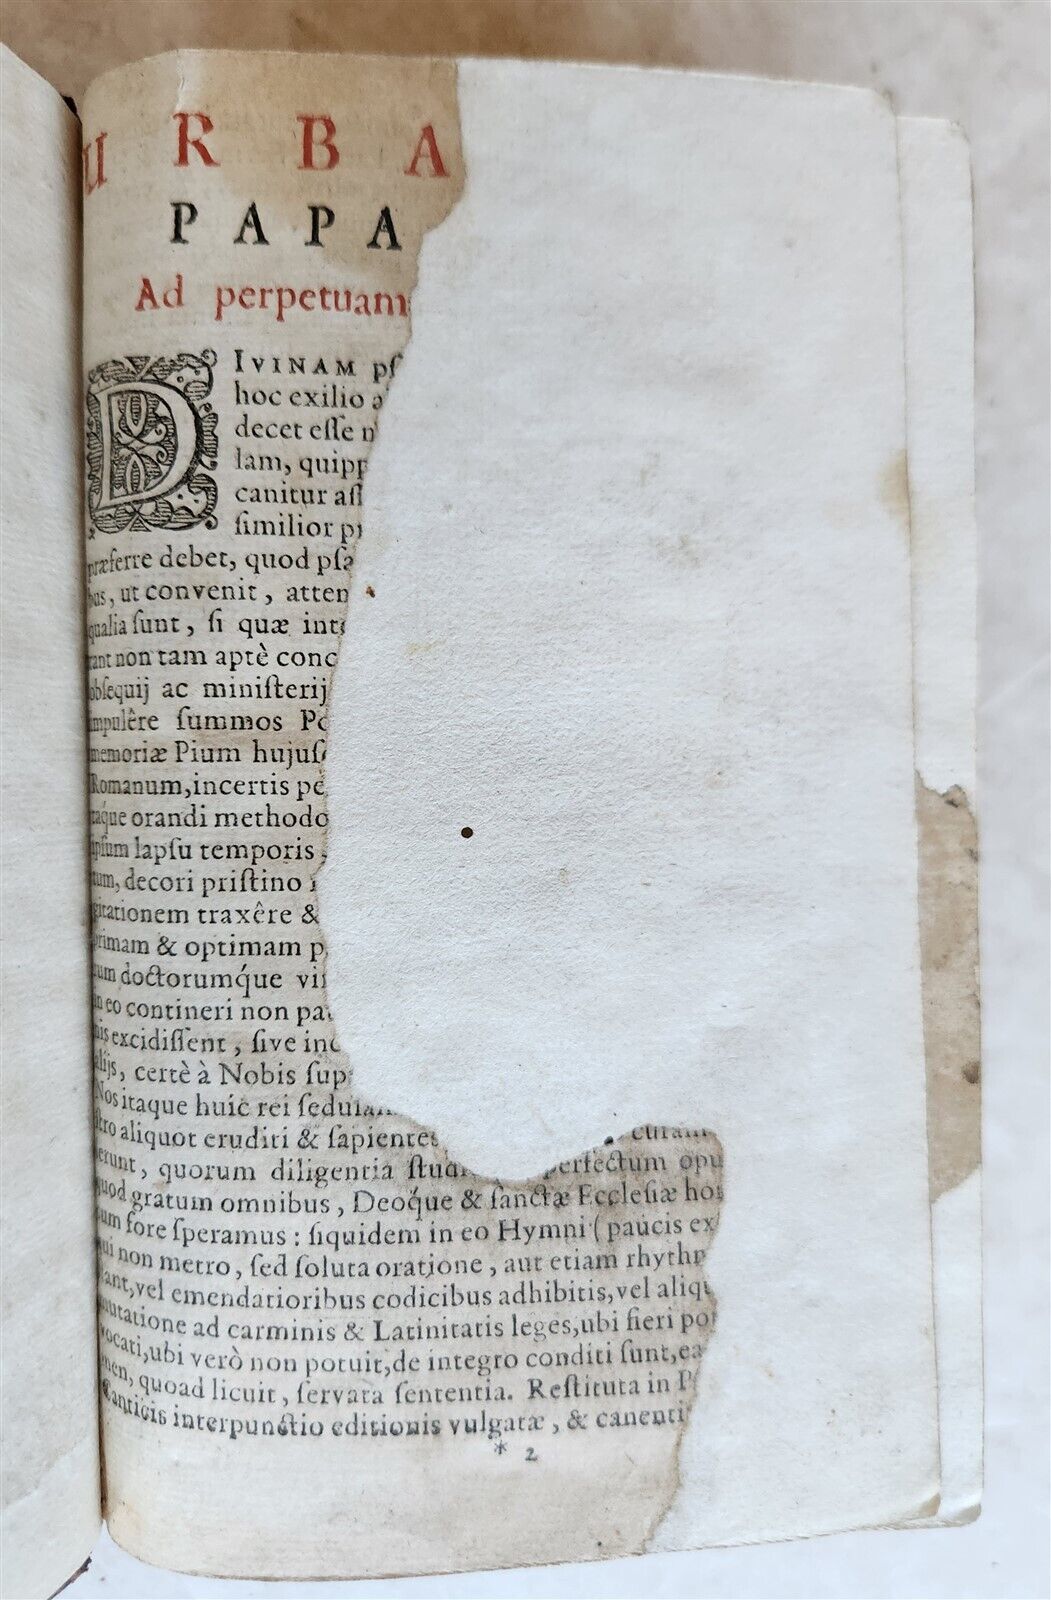 URBA
PAPA
Ad perpetuam
DIVINAM pſ
hoc exilio a
decet eſſe n
lam, quipp
canitur aſſ
ſimilior pr
præferre debet, quod pſa
bus, ut convenit, atten
qualia ſunt, ſi quæ inte
rant non tam aptè conc
obſequij ac miniſterij
impulêre ſummos Po
memoriæ Pium hujuſ
Romanum, incertis pe
taque orandi methodo
ipſum lapſu temporis
tum, decori priſtino
gitationem traxêre &
primam & optimam p
rum doctorumq́ue vi
in eo contineri non pa
nis excidiſſent, ſive inc
alijs, certè à Nobis ſup
Nos itaque huic rei ſedulam
ſtro aliquot eruditi & ſapientes curam
erunt, quorum diligentia ſtud perfectum opu
quod gratum omnibus, Deoq́ue & ſanctæ Eccleſiæ ho
rum fore ſperamus: ſiquidem in eo Hymni (paucis ex
qui non metro, ſed ſoluta oratione, aut etiam rhythm
ſtant, vel emendatioribus codicibus adhibitis, vel aliqu
mutatione ad carminis & Latinitatis leges, ubi fieri pot
vocati, ubi verò non potuit, de integro conditi ſunt, ea
men, quoad licuit, ſervata ſententia. Reſtituta in P
Canticis interpunctio editionis vulgatæ, & canenti
* 2